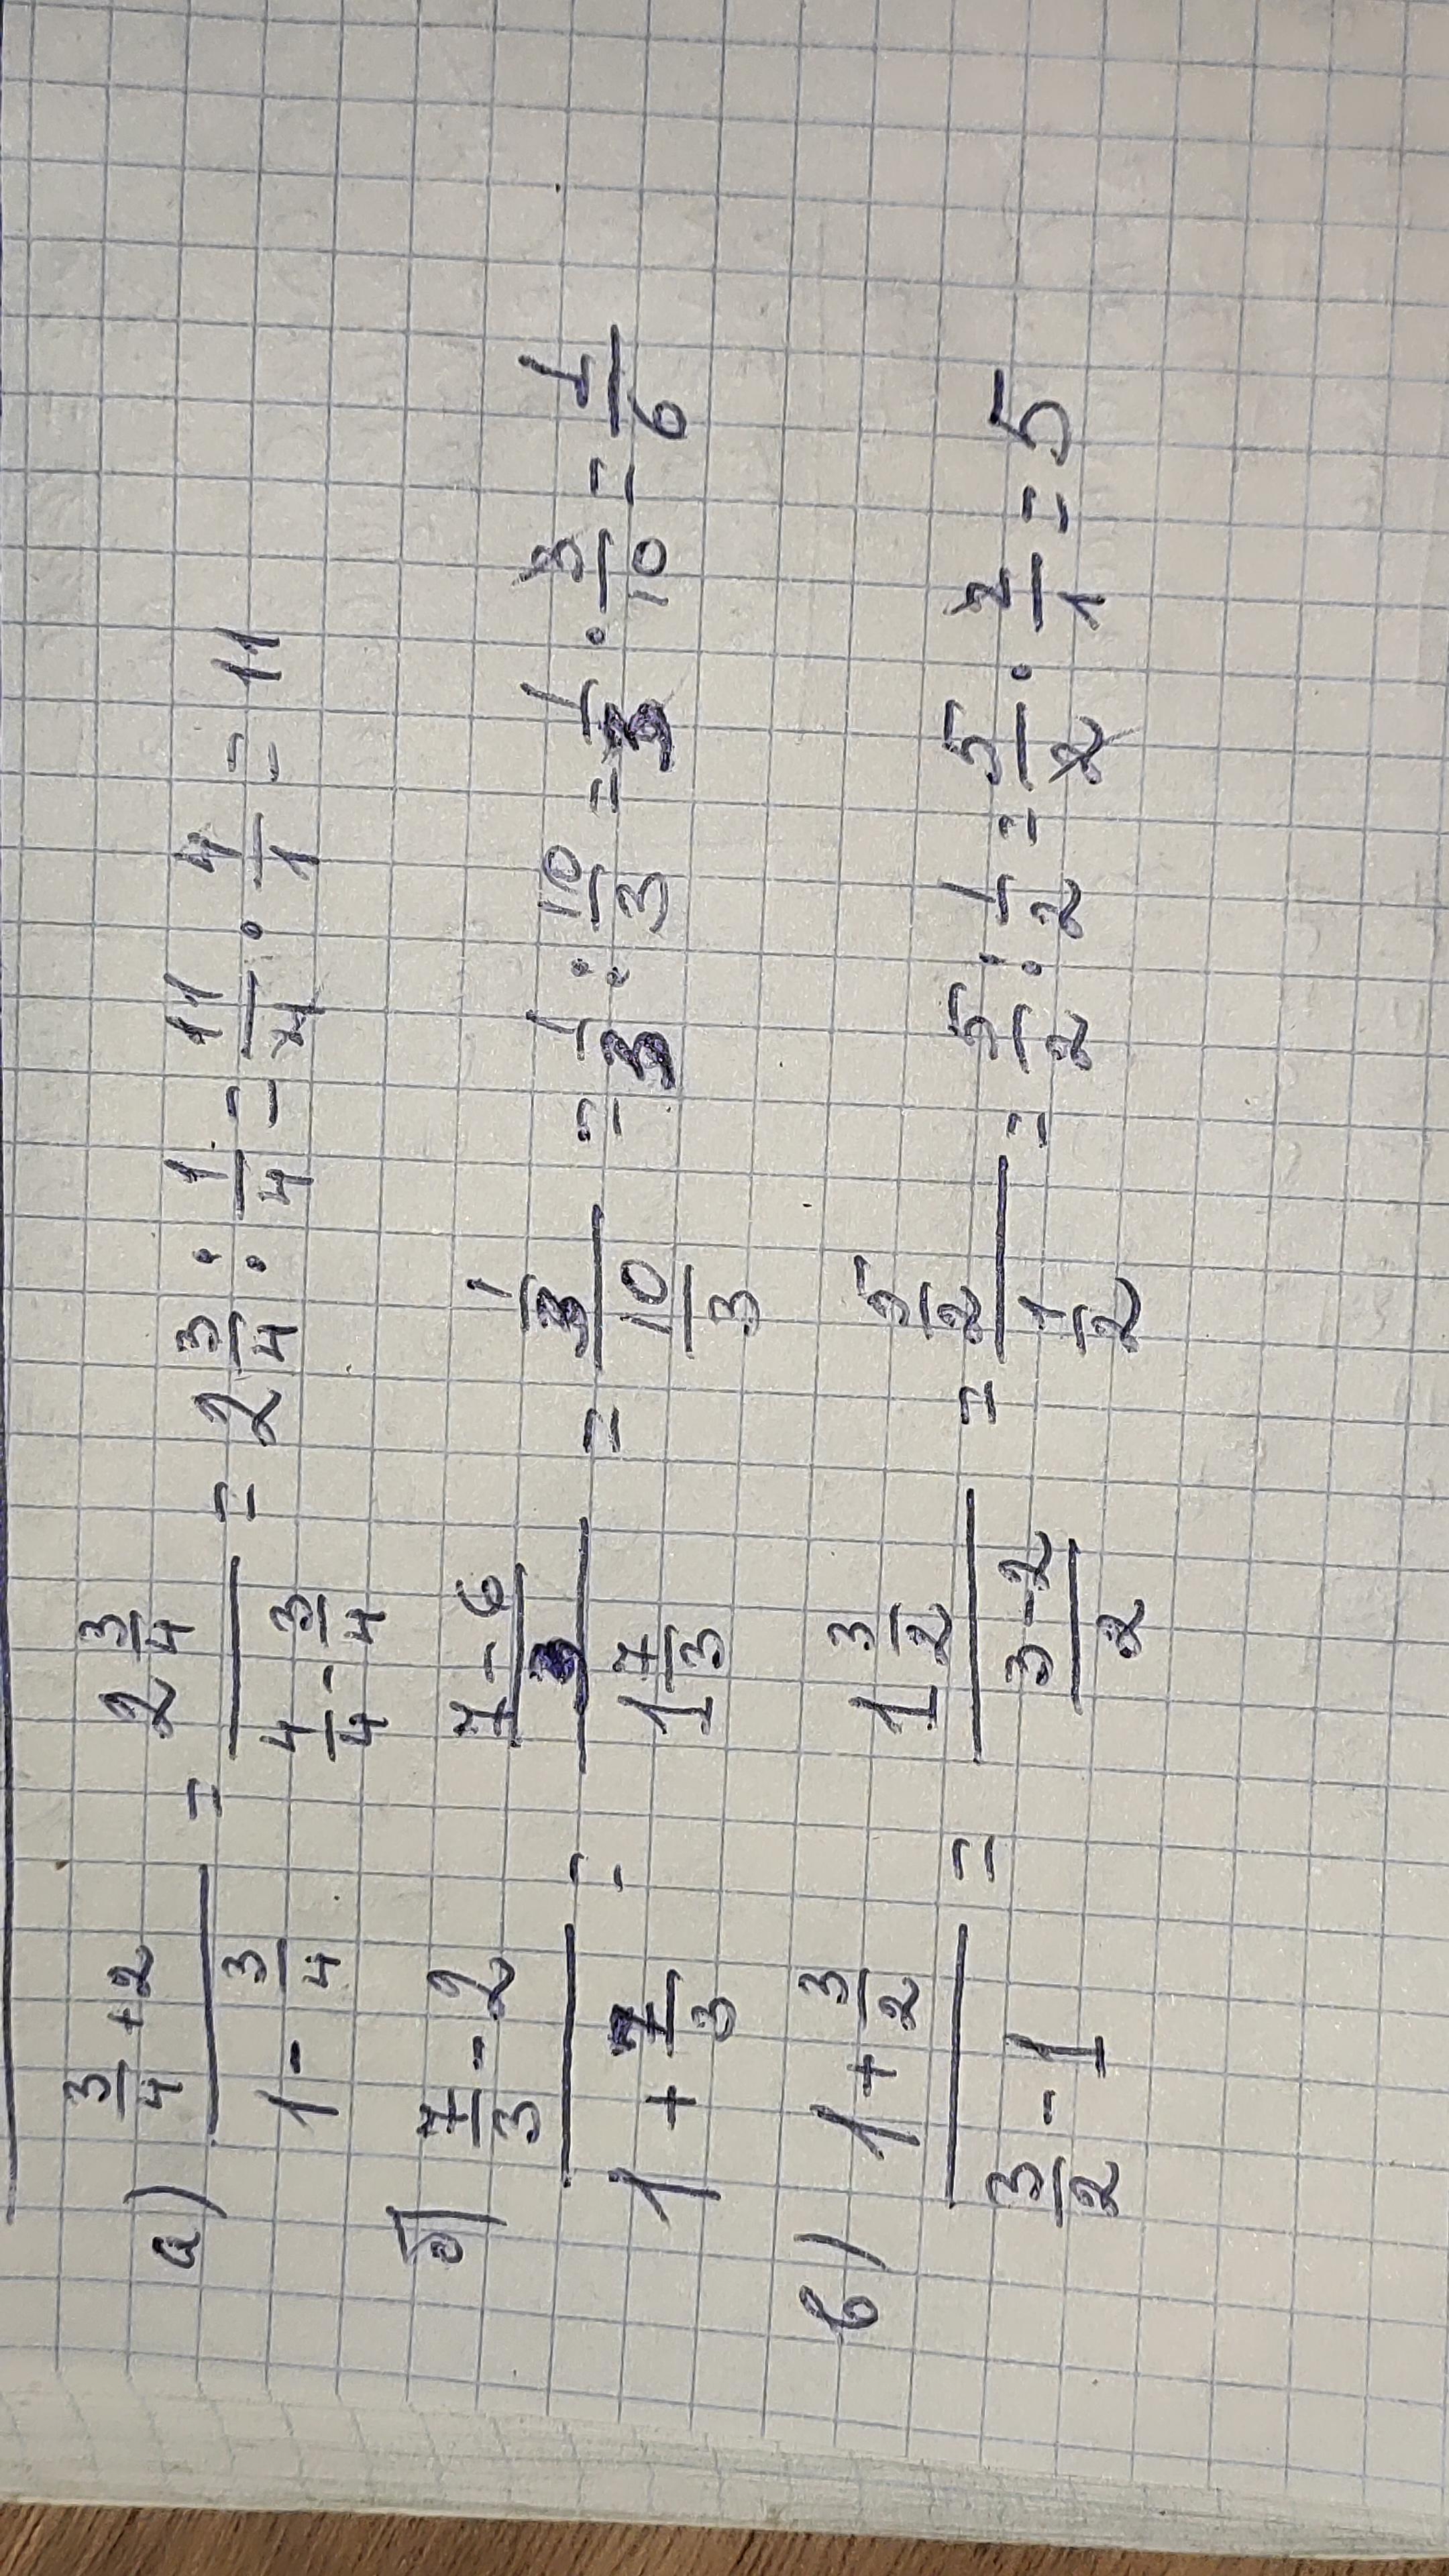 а) (3/4 + 2)/(1 - 3/4) = (2 3/4)/(4/4 - 3/4) = 2 3/4 : 1/4 = 11/4 · 4/1 = 11
б) (7/3 - 2)/(1 + 7/3) = ((7-6)/3)/(1 7/3) = (1/3)/(10/3) = 1/3 : 10/3 = 1/3 · 3/10 = 1/6
в) (1 + 3/2)/(3/2 - 1) = (1 3/2)/((3-2)/2) = (5/2)/(1/2) = 5/2 : 1/2 = 5/2 · 2/1 = 5